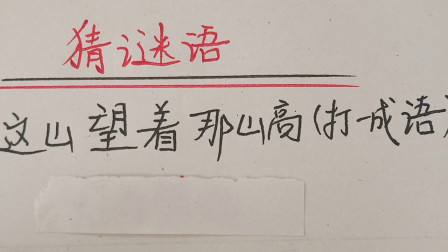 猜谜语
这山望着那山高(打一成语)